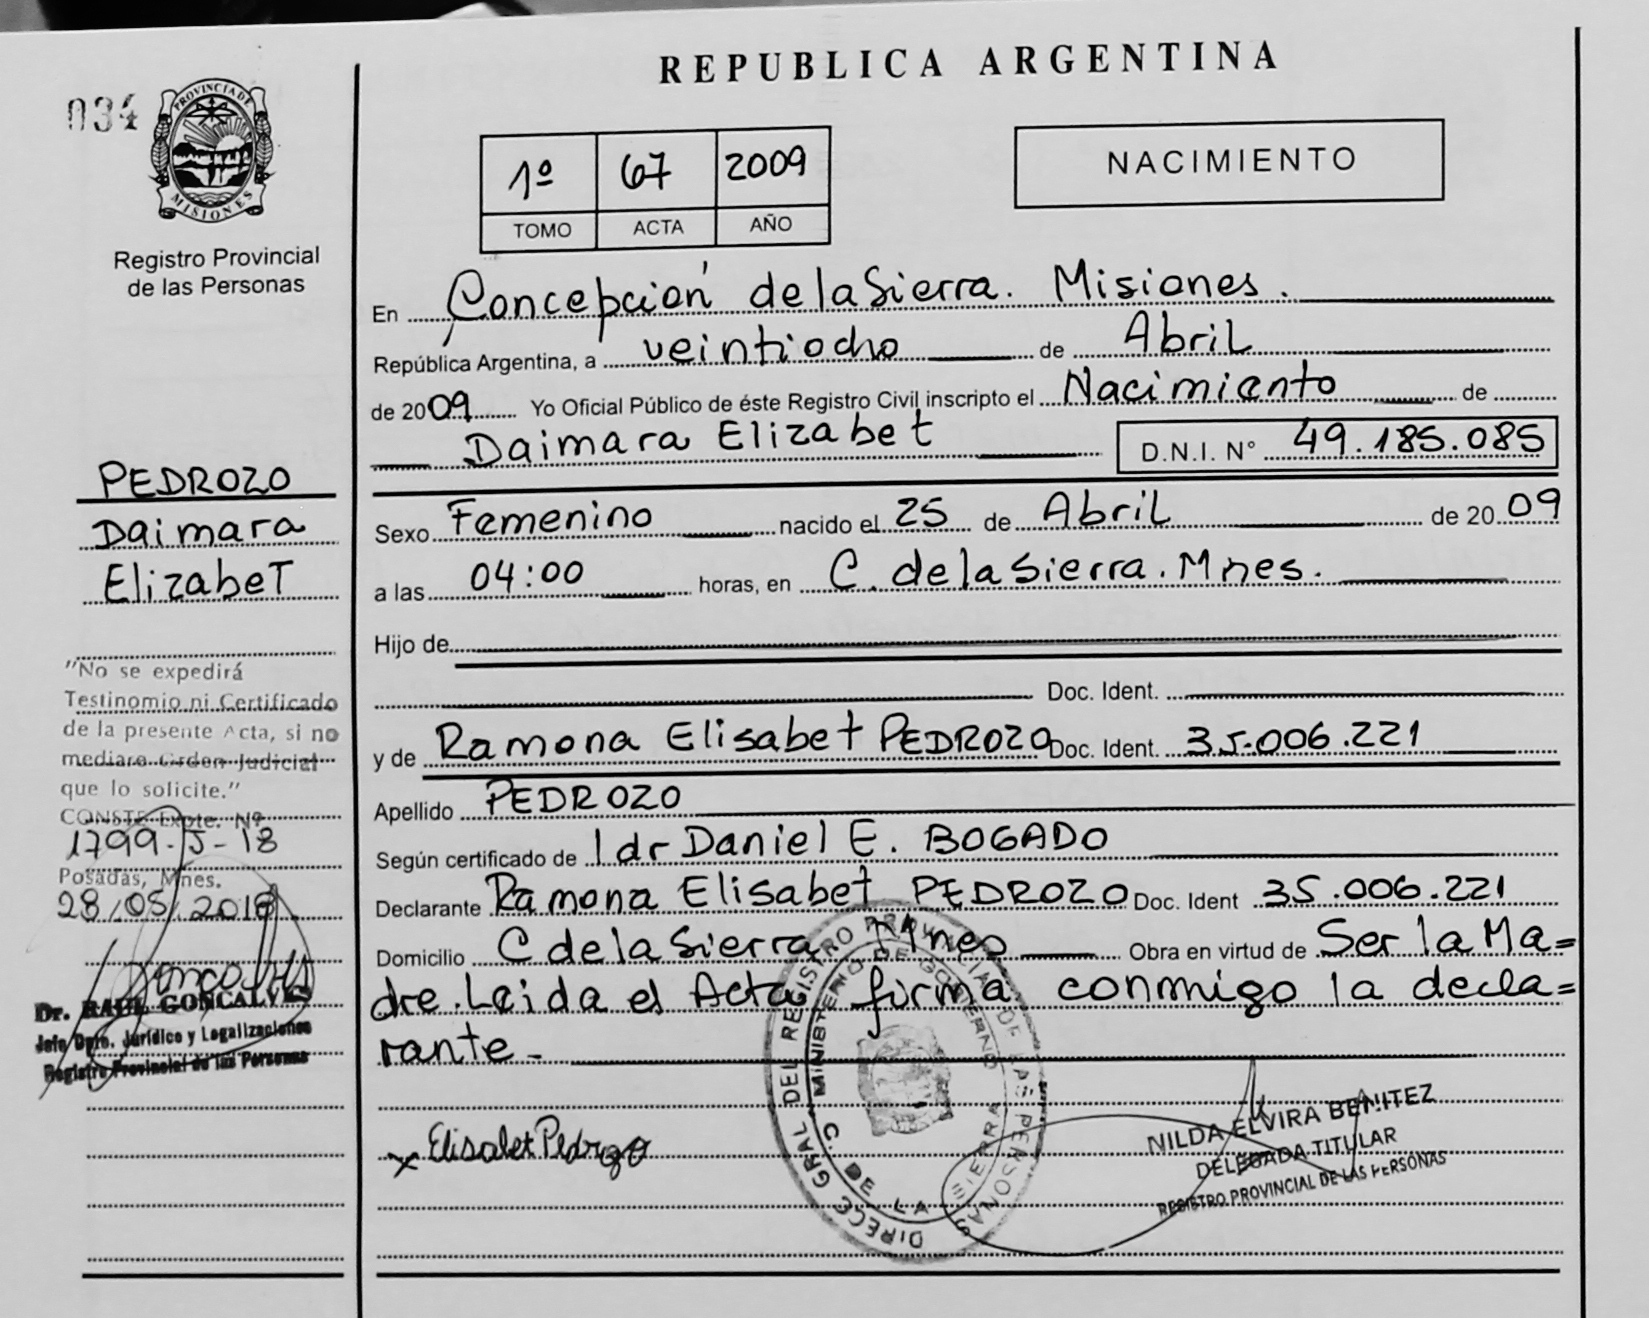 REPUBLICA ARGENTINA
034
PROVINCIA DE MISIONES
Registro Provincial
de las Personas
1º 67 2009
TOMO ACTA AÑO
NACIMIENTO
En Concepción de la Sierra. Misiones.
República Argentina, a veintiocho de Abril
de 2009 Yo Oficial Público de éste Registro Civil inscripto el Nacimiento de
Daimara Elizabet D.N.I. N° 49.185.085
Sexo Femenino nacido el 25 de Abril de 2009
a las 04:00 horas, en C. de la Sierra. Mnes.
Hijo de
Doc. Ident.
y de Ramona Elisabet PEDROZO Doc. Ident. 35.006.221
Apellido PEDROZO
Según certificado de 1 dr Daniel E. BOGADO
Declarante Ramona Elisabet PEDROZO Doc. Ident 35.006.221
Domicilio C de la Sierra Mnes Obra en virtud de Ser la Ma=
dre. Leida el Acta firma conmigo la decla=
rante.-
x Elisabet Pedrozo
PEDROZO
Daimara
Elizabet
"No se expedirá
Testinomio ni Certificado
de la presente Acta, si no
mediare Orden Judicial
que lo solicite."
CONSTE Expte. Nº
1799-J-18
Posadas, Mnes.
28/05/2018
Dr. RAUL GONCALVES
Jefe Dpto. Jurídico y Legalizaciones
Registro Provincial de las Personas
DIRECC GRAL DEL REGISTRO PROVINCIAL DE LAS PERSONAS
MINISTERIO DE GOBIERNO
C. DE LA SIERRA
NILDA ELVIRA BENITEZ
DELEGADA TITULAR
REGISTRO PROVINCIAL DE LAS PERSONAS